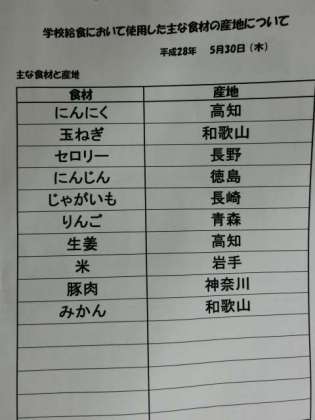 学校給食において使用した主な食材の産地について
平成28年 5月30日(木)
主な食材と産地
食材 産地
にんにく 高知
玉ねぎ 和歌山
セロリー 長野
にんじん 徳島
じゃがいも 長崎
りんご 青森
生姜 高知
米 岩手
豚肉 神奈川
みかん 和歌山